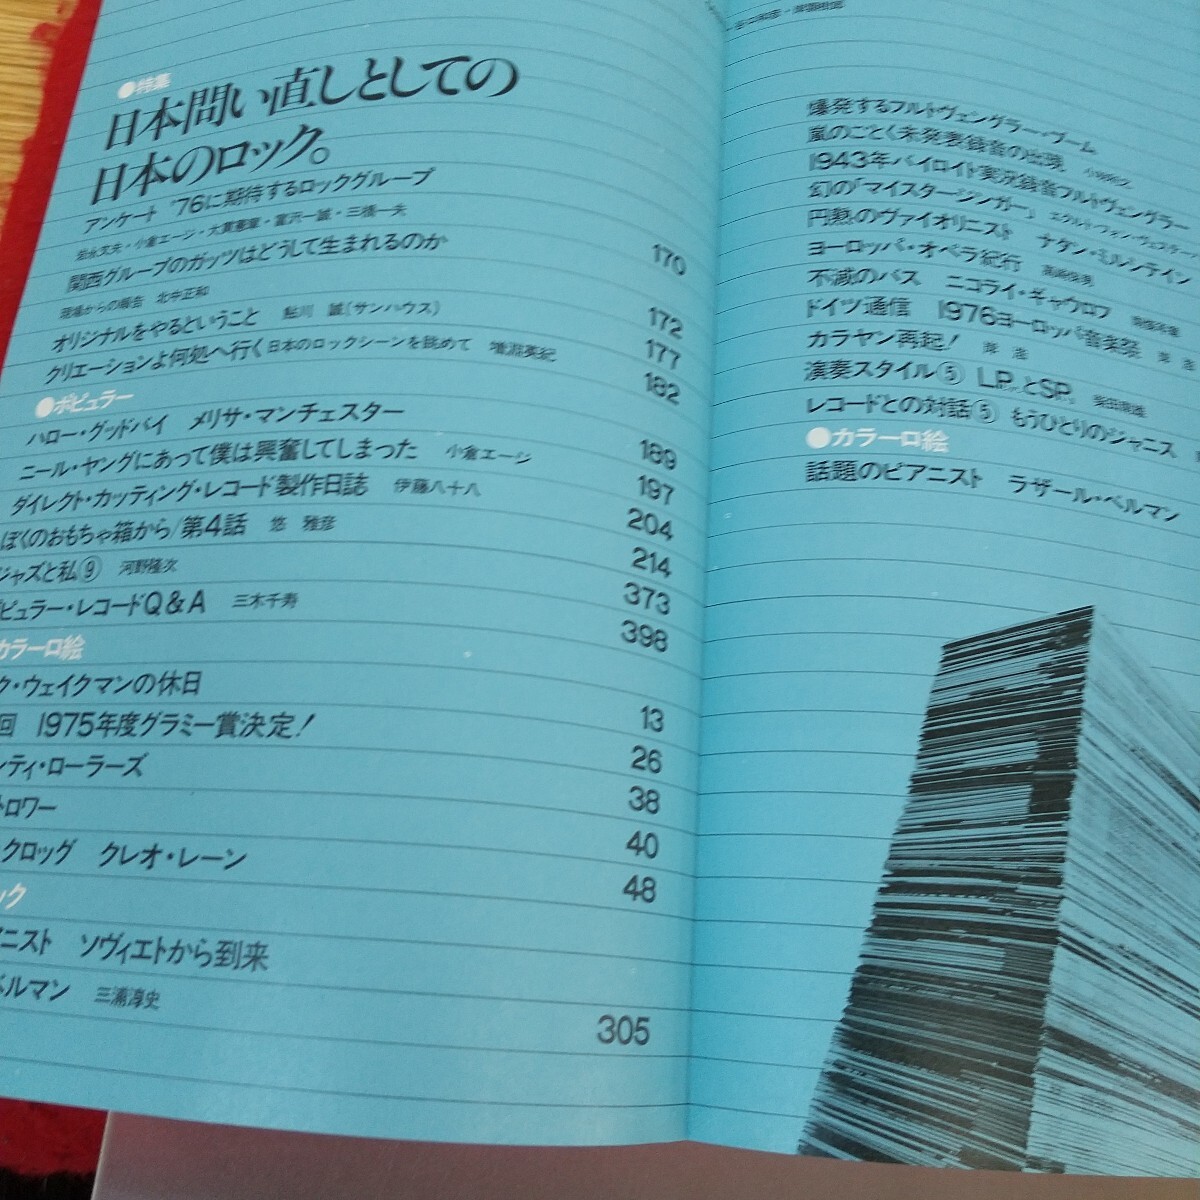 ●特集
日本問い直しとしての
日本のロック。
アンケート '76に期待するロックグループ
岩永文夫・小倉エージ・大貫憲章・富沢一誠・三橋一夫
170
関西グループのガッツはどうして生まれるのか
現場からの報告 北中正和
172
オリジナルをやるということ 鮎川 誠(サンハウス)
177
クリエーションよ何処へ行く 日本のロックシーンを眺めて 増淵英紀
182
●ポピュラー
ハロー・グッドバイ メリサ・マンチェスター
189
ニール・ヤングにあって僕は興奮してしまった 小倉エージ
197
ダイレクト・カッティング・レコード製作日誌 伊藤八十八
204
ぼくのおもちゃ箱から/第4話 悠 雅彦
214
ジャズと私⑨ 河野隆次
373
ピュラー・レコードQ&A 三木千寿
398
カラー口絵
ク・ウェイクマンの休日
13
回 1975年度グラミー賞決定!
26
ンティ・ローラーズ
38
トロワー
40
クロッグ クレオ・レーン
48
ック
アニスト ソヴィエトから到来
ベルマン 三浦淳史
305
爆発するフルトヴェングラー・ブーム
嵐のごとく未発表録音の出現
1943年バイロイト実況録音フルトヴェングラー
幻の「マイスタージンガー」
円熟のヴァイオリニスト ナタン・ミルシテイン
ヨーロッパ・オペラ紀行
不滅のバス ニコライ・ギャウロフ
ドイツ通信 1976ヨーロッパ音楽祭
カラヤン再起!
演奏スタイル⑤ L.P.とS.P. 柴田南雄
レコードとの対話⑤ もうひとりのジャニス
●カラー口絵
話題のピアニスト ラザール・ベルマン